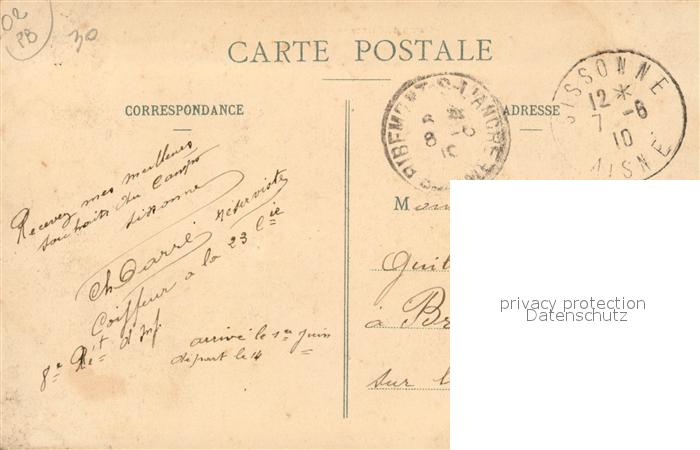 02
PB
30
CARTE POSTALE
CORRESPONDANCE
ADRESSE
RIBEMONT-S-L'ANCRE
SOMME
8
SISSONNE
12 *
7 -6
10
AISNE
Recevez mes meilleurs
souhaits du Camp
Sissonne
réserviste
Coiffeur a la 23 Cie
8e Rét d'Inf.
arrivé le 1er juin
départ le 14
à Br
sur l
privacy protection
Datenschutz